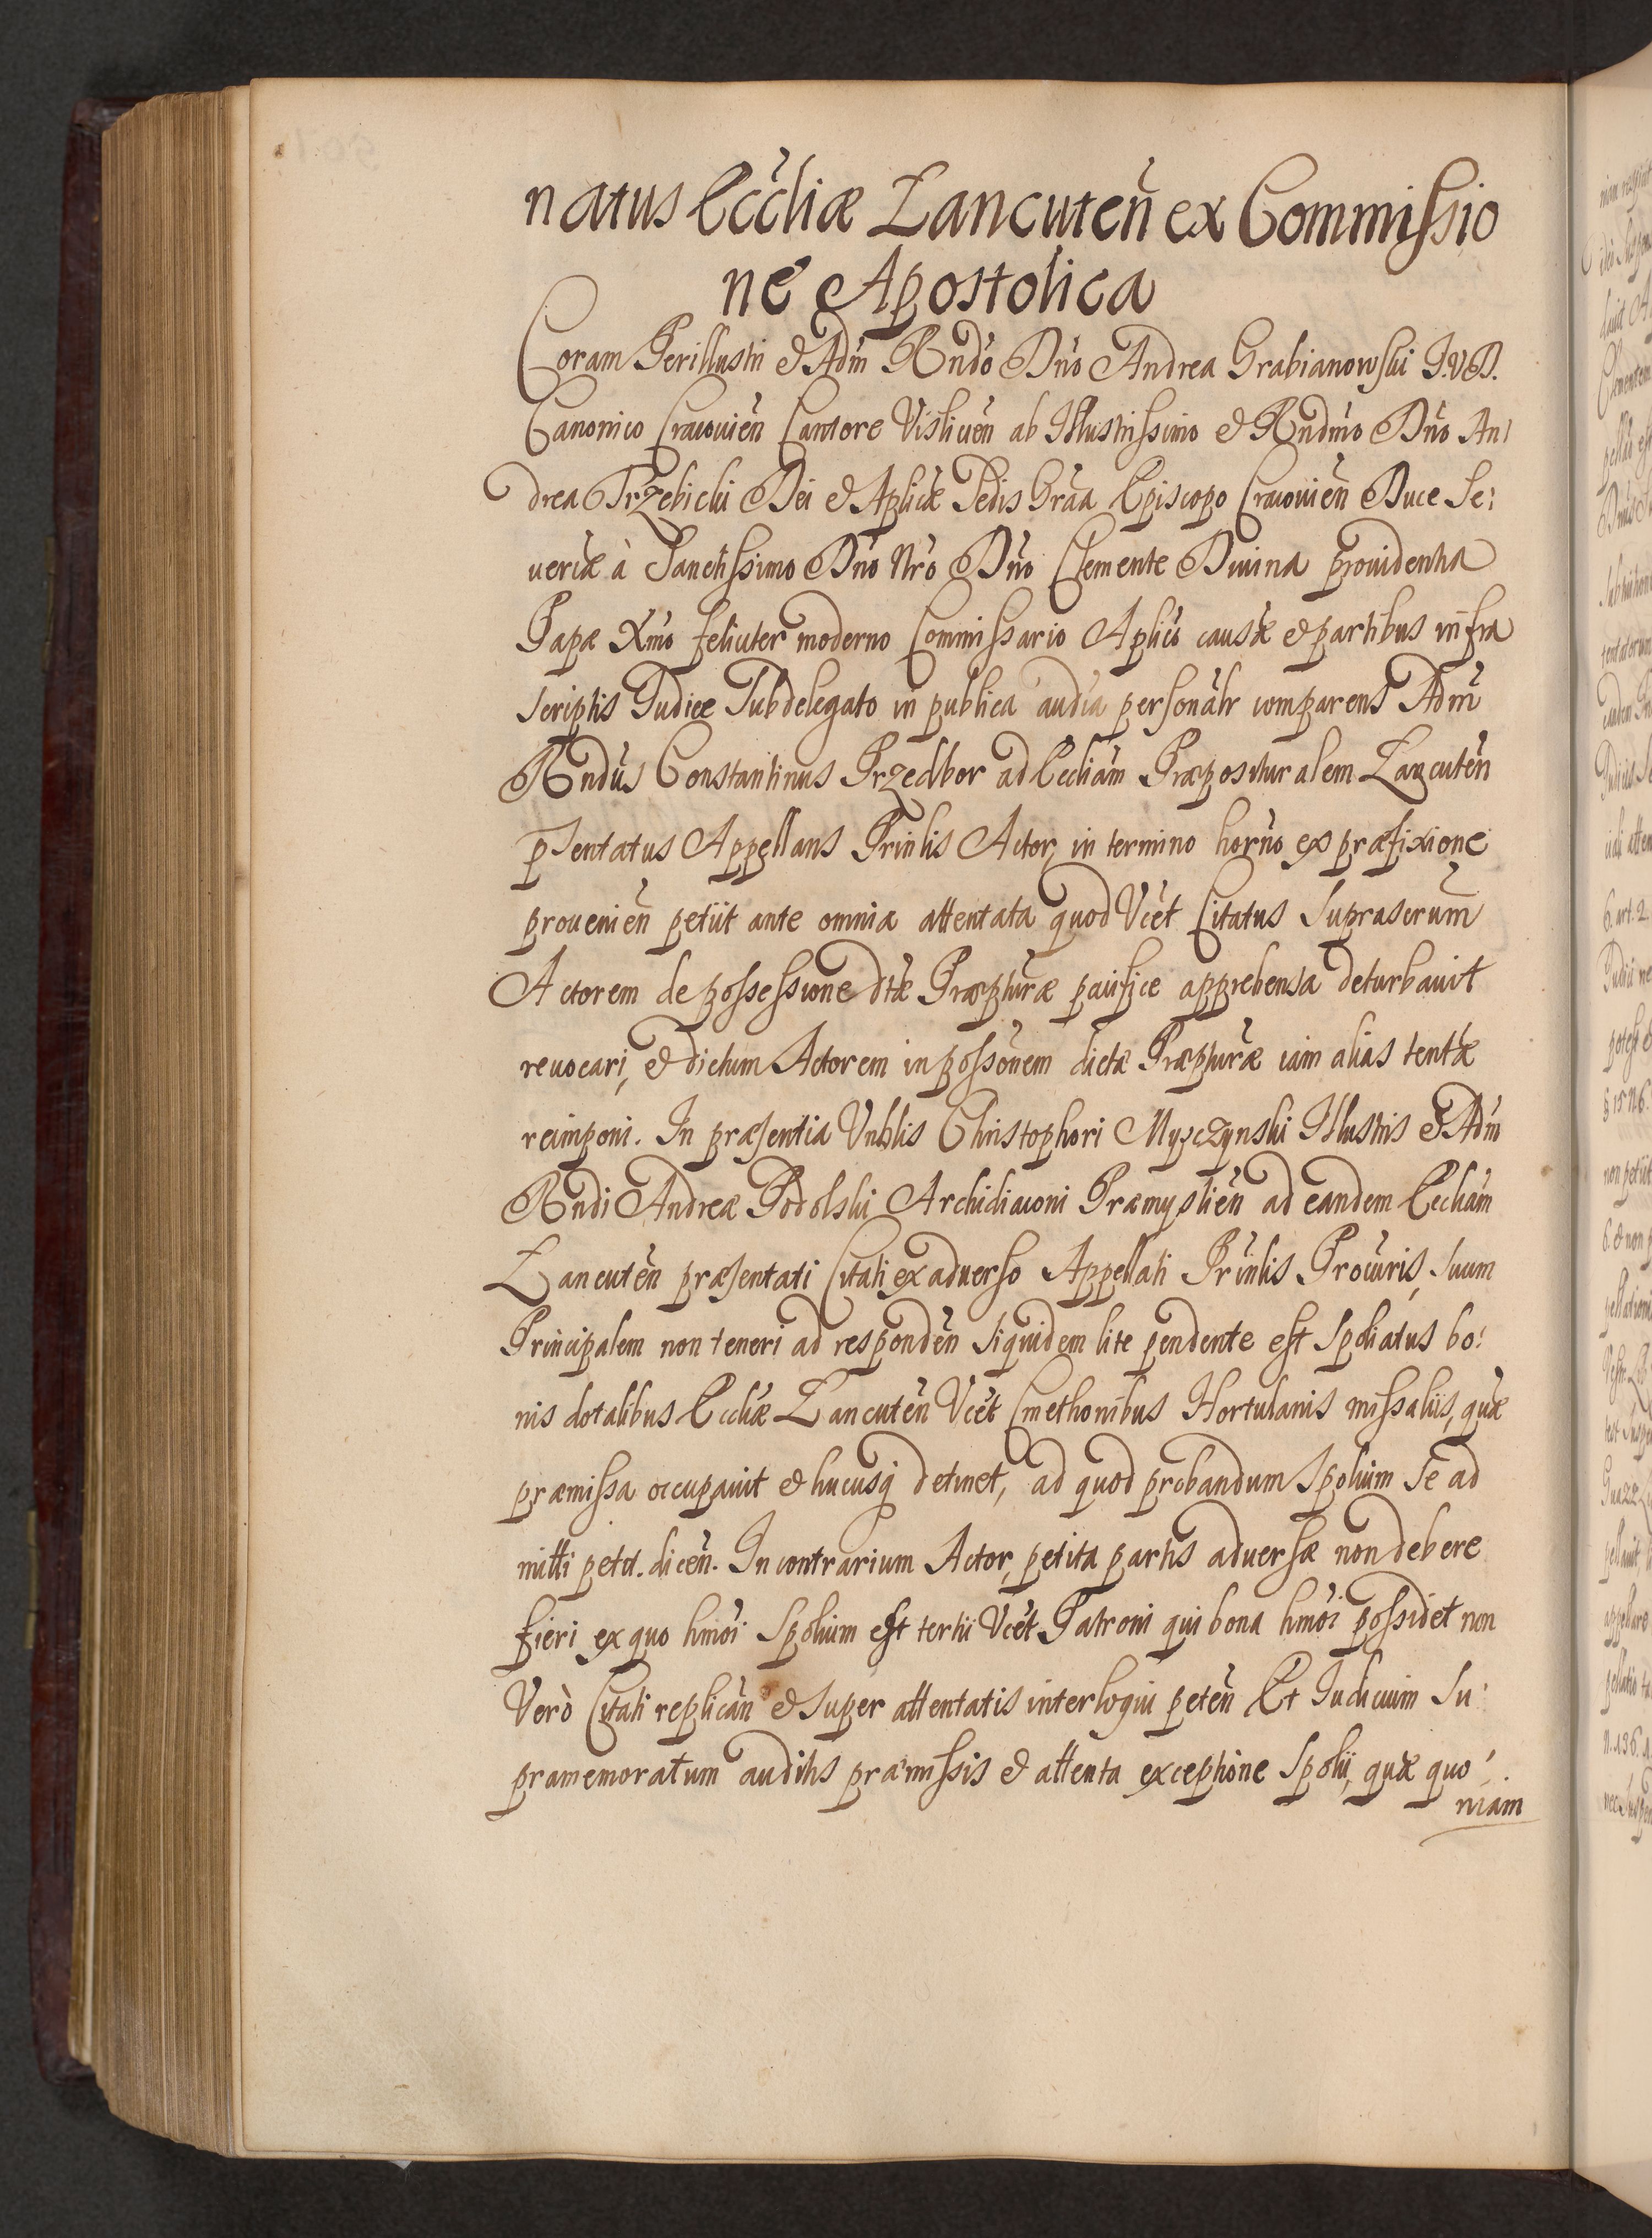 natus Eccliæ Lancuteñ ex Commissio
ne Apostolica
Coram Perillustri & Adm Rndo Dno Andrea Grabianowski I.V.D.
Canonico Cracouien Cantore Visliuen ab Illustrissimo & Rndmo Dno An:
drea Trzebicki Dei & Aplicæ Sedis Graa Episcopo Cracouien Duce Se:
ueriæ à Sanctissimo Dno Nro Dno Clemente Diuina prouidentia
Papæ Xmo feliciter moderno Commissario Aplico causæ & partibus infra
scriptis Iudice Subdelegato in publica audia personalr comparens Adm
Rndus Constantinus Przedbor ad Eccliam Præposituralem Lancuten
psentatus Appellans Prinlis Actor, in termino horno ex præfixione
prouenien petiit ante omnia attentata quod Vcet Citatus Suprascrum
Actorem de possessione dtæ Præpturæ pacifice apprehensa deturbauit
reuocari, & dictum Actorem in possonem dictæ Præpturæ iam alias tentæ
reimponi. In præsentia Vnblis Christophori Myszczynski Illustris & Adm
Rndi Andreæ Podolski Archidiaconi Præmyslien ad eandem Eccliam
Lancuten præsentati Citati ex aduerso Appellati Prinlis Procuris, suum
Principalem non teneri ad responden siquidem lite pendente est spoliatus bo:
nis dotalibus Eccliæ Lancuten Vcet Cmethonibus Hortulanis missaliis, quæ
præmissa occupauit & hucusq detinet, ad quod probandum Spolium se ad
mitti petit. dicen. In contrarium Actor, petita partis aduersæ non debere
fieri ex quo hmoi Spolium est tertii Vcet Patroni qui bona hmoi possidet non
Verò Citati replican & super attentatis interloqui peten Et Iudicium Su:
pramemoratum auditis præmissis & attenta exceptione Spolii, quæ quo:
niam